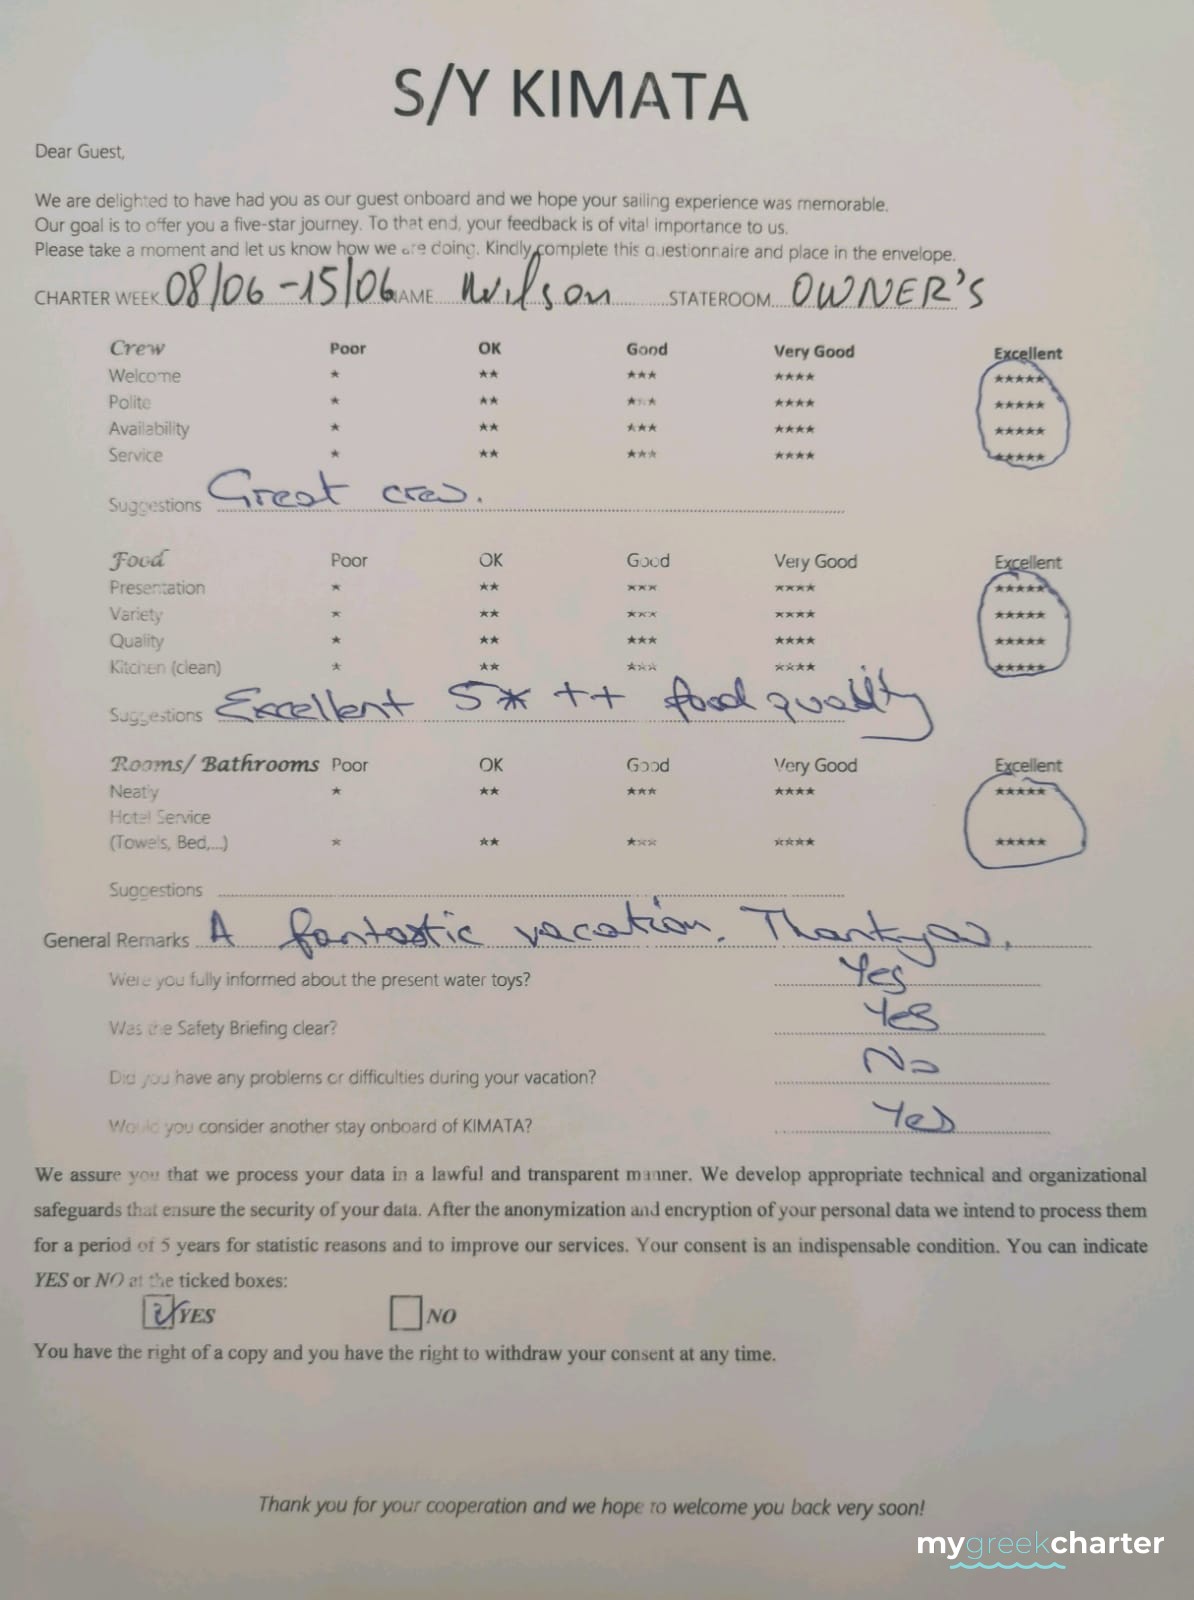 S/Y KIMATA
Dear Guest,
We are delighted to have had you as our guest onboard and we hope your sailing experience was memorable.
Our goal is to offer you a five-star journey. To that end, your feedback is of vital importance to us.
Please take a moment and let us know how we are doing. Kindly complete this questionnaire and place in the envelope.
CHARTER WEEK 08/06-15/06 NAME Wilson STATEROOM OWNER'S
Crew Poor OK Good Very Good Excellent
Welcome * ** *** **** *****
Polite * ** *** **** *****
Availability * ** *** **** *****
Service * ** *** **** *****
Suggestions Great crew.
Food Poor OK Good Very Good Excellent
Presentation * ** *** **** *****
Variety * ** *** **** *****
Quality * ** *** **** *****
Kitchen (clean) * ** *** **** *****
Suggestions Excellent 5* ++ food quality
Rooms/ Bathrooms Poor OK Good Very Good Excellent
Neatly * ** *** **** *****
Hotel Service
(Towels, Bed,...) * ** *** **** *****
Suggestions
General Remarks A fantastic vacation. Thank you.
Were you fully informed about the present water toys? Yes
Was the Safety Briefing clear? Yes
Did you have any problems or difficulties during your vacation? No
Would you consider another stay onboard of KIMATA? Yes
We assure you that we process your data in a lawful and transparent manner. We develop appropriate technical and organizational
safeguards that ensure the security of your data. After the anonymization and encryption of your personal data we intend to process them
for a period of 5 years for statistic reasons and to improve our services. Your consent is an indispensable condition. You can indicate
YES or NO at the ticked boxes:
YES NO
You have the right of a copy and you have the right to withdraw your consent at any time.
Thank you for your cooperation and we hope to welcome you back very soon!
mygreekcharter